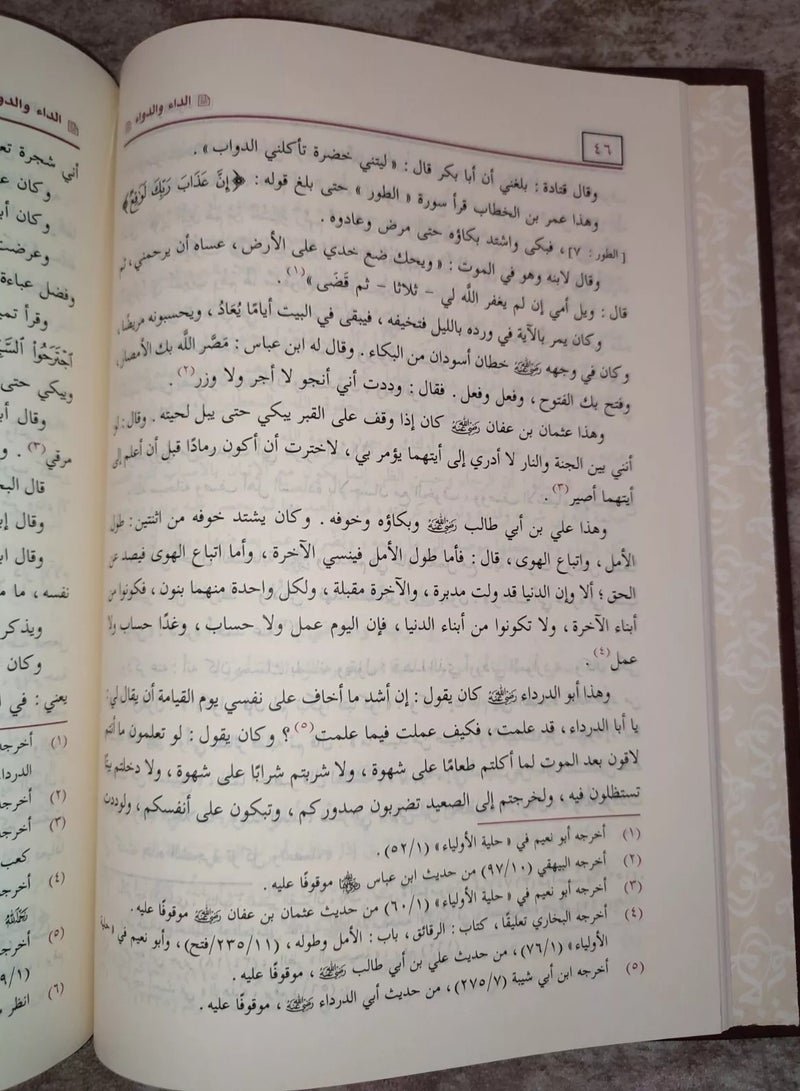 الداء والدواء
٤٦
وقال قتادة : بلغني أن أبا بكر قال : « ليتني خضرة تأكلني الدواب » .
وهذا عمر بن الخطاب قرأ سورة « الطور » حتى بلغ قوله : ﴿ إِنَّ عَذَابَ رَبِّكَ لَوَٰقِعٌ ﴾
[الطور : ٧] ، فبكى واشتد بكاؤه حتى مرض وعادوه .
وقال لابنه وهو في الموت : « ويحك ضع خدي على الأرض ، عساه أن يرحمني، ثم
قال : ويل أمي إن لم يغفر اللَّه لي – ثلاثا – ثم قَضَى » (١) .
وكان يمر بالآية في ورده بالليل فتخيفه ، فيبقى في البيت أيامًا يُعَادُ ، ويحسبونه مريضًا،
وكان في وجهه رضي الله عنه خطان أسودان من البكاء . وقال له ابن عباس : مَصَّر اللَّه بك الأمصار،
وفتح بك الفتوح ، وفعل وفعل . فقال : وددت أني أنجو لا أجر ولا وزر (٢) .
وهذا عثمان بن عفان رضي الله عنه كان إذا وقف على القبر يبكي حتى يبل لحيته . وقال : لو
أنني بين الجنة والنار لا أدري إلى أيتهما يؤمر بي ، لاخترت أن أكون رمادًا قبل أن أعلم إلى
أيتهما أصير (٣) .
وهذا علي بن أبي طالب رضي الله عنه وبكاؤه وخوفه . وكان يشتد خوفه من اثنتين : طول
الأمل ، واتباع الهوى ، قال : فأما طول الأمل فينسي الآخرة ، وأما اتباع الهوى فيصد عن
الحق ؛ ألا وإن الدنيا قد ولت مدبرة ، والآخرة مقبلة ، ولكل واحدة منهما بنون ، فكونوا من
أبناء الآخرة ، ولا تكونوا من أبناء الدنيا ، فإن اليوم عمل ولا حساب ، وغدًا حساب ولا
عمل (٤) .
وهذا أبو الدرداء رضي الله عنه كان يقول : إن أشد ما أخاف على نفسي يوم القيامة أن يقال لي :
يا أبا الدرداء ، قد علمت ، فكيف عملت فيما علمت (٥) ؟ وكان يقول : لو تعلمون ما أنتم
لاقون بعد الموت لما أكلتم طعامًا على شهوة ، ولا شربتم شرابًا على شهوة ، ولا دخلتم بيتًا
تستظلون فيه ، ولخرجتم إلى الصعيد تضربون صدوركم ، وتبكون على أنفسكم ، ولوددت
(١) أخرجه أبو نعيم في « حلية الأولياء » (٥٢/١) .
(٢) أخرجه البيهقي (٩٧/١٠) من حديث ابن عباس رضي الله عنهما موقوفًا عليه .
(٣) أخرجه أبو نعيم في « حلية الأولياء » (٦٠/١) من حديث عثمان بن عفان رضي الله عنه موقوفًا عليه .
(٤) أخرجه البخاري تعليقًا ، كتاب : الرقائق ، باب : الأمل وطوله ، (٢٣٥/١١/فتح) ، وأبو نعيم في « حلية
الأولياء » (٧٦/١) ، من حديث علي بن أبي طالب رضي الله عنه ، موقوفًا عليه .
(٥) أخرجه ابن أبي شيبة (٢٧٥/٧) ، من حديث أبي الدرداء رضي الله عنه ، موقوفًا عليه .
أني شجرة
وكان
وكان
وعرضت
وفضل عباءة
وقرأ
ٱجْتَرَحُوا۟
ويبكي حتى
وقال
(٣) .
قال
وقال
وقال
نفسه ، ما
ويذكر
وكان
يعني : في
(١) أخرجه
الدرداء
(٢) أخرجه
(٣) أخرجه
كعب
(٤) أخرجه
(٥) أخرجه
(٦) انظر